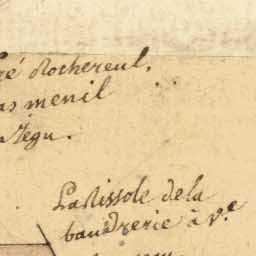 ré Rochereul,
as menil
Jegu.
La Rissole de la
baudrerie à v.e